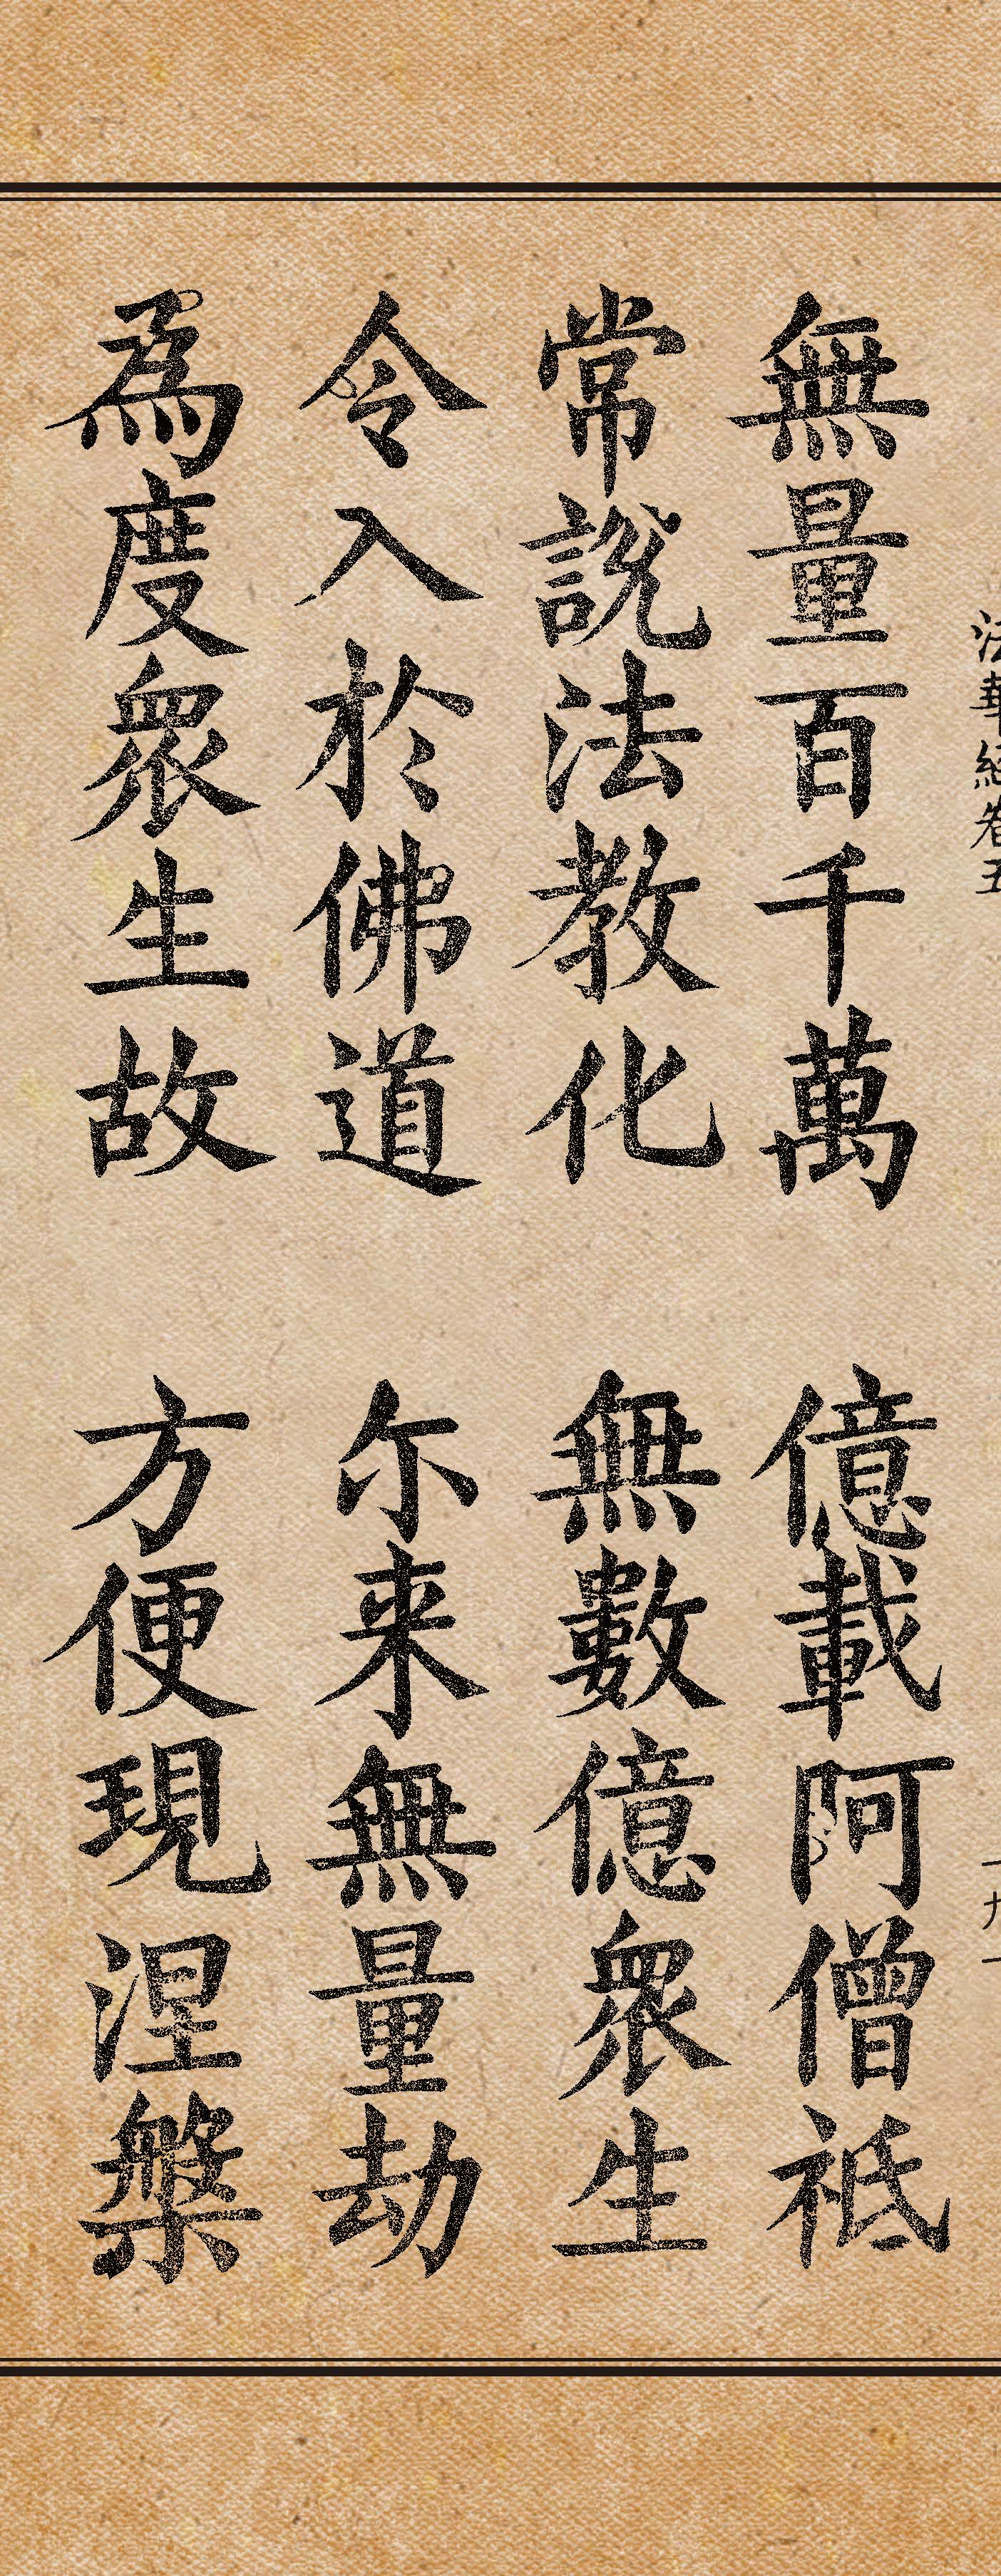 法華經卷五
一九一
無量百千萬 億載阿僧祇
常說法教化 無數億眾生
令入於佛道 尒来無量劫
為度眾生故 方便現涅槃